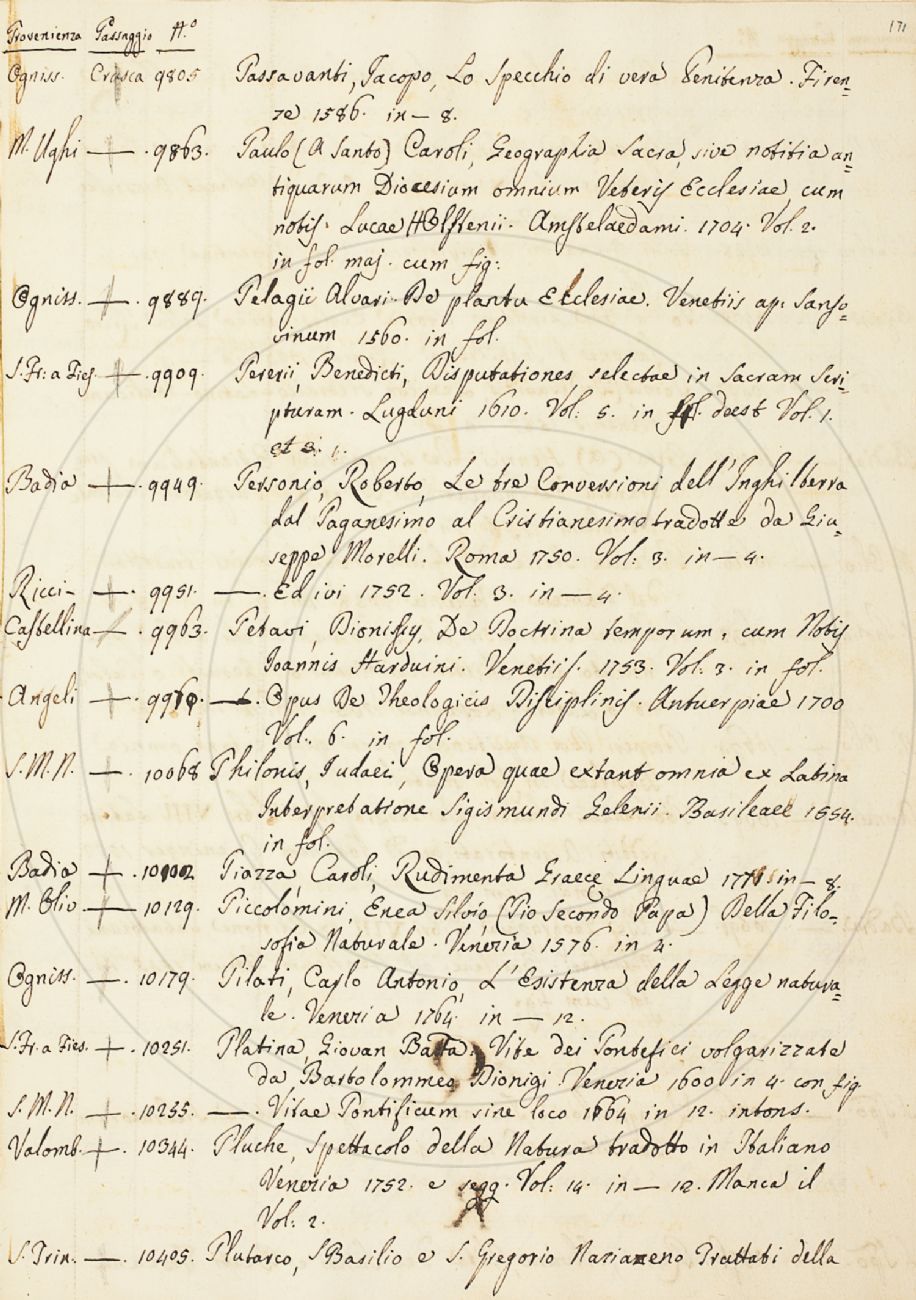 171
Provenienza Passaggio N.º
Ogniss. Crusca 9805 Passavanti, Jacopo, Lo Specchio di vera Penitenza. Firen=
ze 1586. in— 8.
M. Ughi —. 9863. Paulo (A Santo) Caroli, Geographia Sacra, sive notitia an=
tiquarum Dioecesium omnium Veteris Ecclesiae, cum
notis. Lucae Holstenii. Amstelaedami. 1704. Vol. 2.
in fol. maj. cum fig:
Ogniss. —. 9889. Pelagii Alvari. De planctu Ecclesiae. Venetiis ap: Sanso=
vinum 1560. in fol.
S. Fr: a Fies. —. 9909. Pererii, Benedicti, Disputationes selectae in Sacram Scri=
pturam. Lugduni 1610. Vol: 5. in fol. deest Vol. 1.
et 3.
Badia —. 9949. Personio, Roberto, Le tre Conversioni dell'Inghilterra
dal Paganesimo al Cristianesimo tradotte da Giu=
seppe Morelli. Roma 1750. Vol: 3. in— 4.
Ricci- —. 9951. —. Ed ivi 1752. Vol: 3. in— 4.
Castellina —. 9963. Petavi, Dionisy, De Doctrina temporum, cum Notis
Joannis Harduini. Venetiis. 1753. Vol: 3. in fol.
Angeli —. —. Opus De Theologicis Disciplinis. Antuerpiae 1700
Vol.. 6. in fol.
S. M. N. —. 10068 Philonis, Judaei, Opera quae extant omnia ex Latina
Interpretatione Sigismundi Gelenii. Basileae 1554.
in fol.
Badia —. Piazza Caroli, Rudimenta Graecę Linguae in— 8.
M. Oliv —. 10129. Piccolomini, Enea Silvio (Pio Secondo Papa) Della Filo=
sofia Naturale. Venezia 1576. in 4.
Ogniss. —. 10179. Pilati, Carlo Antonio, L'Esistenza della Legge natura=
le. Venezia 1764. in — 12.
S. Fr. a Fies. —. 10251. Platina, Giovan Batta. Vite dei Pontefici volgarizzate
da Bartolommeo Dionigi. Venezia 1600 in 4. con fig
S. M. N. —. 10255. —. Vitae Pontificum sine loco 1664 in 12. intons.
Valomb. —. 10344. Pluche, Spettacolo della Natura tradotto in Italiano
Venezia 1752. e segg. Vol: 14. in— 12. Manca il
Vol: 2.
S. Trin. —. 10405. Plutarco, S Basilio e S. Gregorio Nazianzeno Trattati della